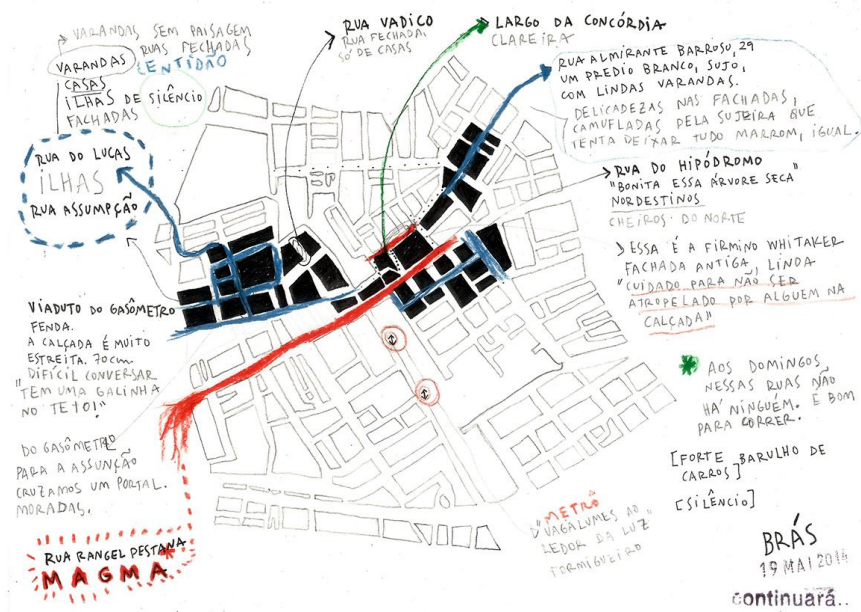 VARANDAS SEM PAISAGEM
RUAS FECHADAS
LENTIDÃO
VARANDAS
CASAS
ILHAS DE SILÊNCIO
FACHADAS
RUA DO LUCAS
ILHAS
RUA ASSUMPÇÃO
RUA VADICO
RUA FECHADA,
SÓ DE CASAS
LARGO DA CONCÓRDIA
CLAREIRA
RUA ALMIRANTE BARROSO, 29
UM PREDIO BRANCO, SUJO,
COM LINDAS VARANDAS.
DELICADEZAS NAS FACHADAS,
CAMUFLADAS PELA SUJEIRA QUE
TENTA DEIXAR TUDO MARROM, IGUAL.
RUA DO HIPÓDROMO
"BONITA ESSA ÁRVORE SECA"
NORDESTINOS
CHEIROS DO NORTE
ESSA É A FIRMINO WHITAKER
FACHADA ANTIGA, LINDA
"CUIDADO PARA NÃO SER
ATROPELADO POR ALGUEM NA
CALÇADA"
VIADUTO DO GASÔMETRO
FENDA.
A CALÇADA É MUITO
ESTREITA. 70cm
DIFÍCIL CONVERSAR
"TEM UMA GALINHA
NO TETO!"
DO GASÔMETRO
PARA A ASSUNÇÃO
CRUZAMOS UM PORTAL.
MORADAS.
RUA RANGEL PESTANA*
MAGMA
* AOS DOMINGOS
NESSAS RUAS NÃO
HÁ NINGUÉM. E BOM
PARA CORRER.
[FORTE BARULHO DE
CARROS]
[SILÊNCIO]
METRÔ
"VAGALUMES AO
REDOR DA LUZ"
FORMIGUEIRO
BRÁS
19 MAI 2014
continuará..